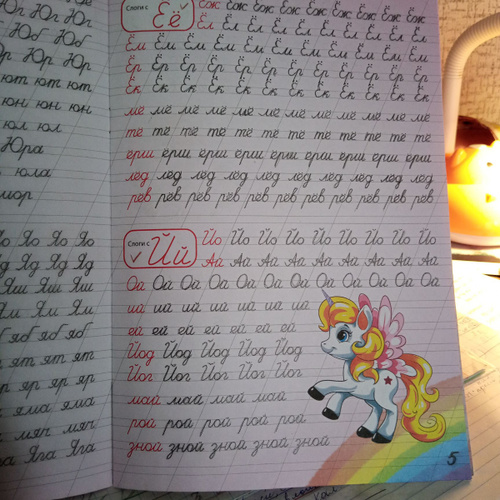 Юг Юг
Юб Юб
Юр Юр
ют ют ют
юн юн
юл юл
Юра
юла
Яо Яо Яо
Яд Яд
Яш Яш
Ям Ям
яб яб
ят ят
яр яр яр
яма яма
мяч мяч
Яга Яга
Слоги с Ёё
Ёж Ёж Ёж Ёж Ёж Ёж Ёж Ёж
Ёл Ёл Ёл Ёл Ёл Ёл Ёл Ёл Ёл
Ём Ём Ём Ём Ём Ём Ём Ём Ём Ём
Ёр Ёр Ёр Ёр Ёр Ёр Ёр Ёр Ёр Ёр Ёр
Ёк Ёк Ёк Ёк Ёк Ёк Ёк Ёк Ёк Ёк Ёк
мё мё мё мё мё мё мё мё мё мё мё
тё тё тё тё тё тё тё тё тё тё тё
ёрш ёрш ёрш ёрш ёрш ёрш ёрш ёрш ёрш
лёд лёд лёд лёд лёд лёд лёд лёд лёд
рёв рёв рёв рёв рёв рёв рёв рёв рёв рёв рёв
Слоги с Йй
Йо Йо Йо Йо Йо Йо Йо Йо Йо
Ай Ай Ай Ай Ай Ай Ай Ай Ай
Ой Ой Ой Ой Ой Ой Ой Ой Ой Ой Ой Ой
ий ий ий ий ий ий ий
ей ей ей ей ей ей ей
Йод Йод Йод Йод Йод
Йог Йог Йог Йог Йог
май май май май
рой рой рой рой рой
зной зной зной зной зной
5